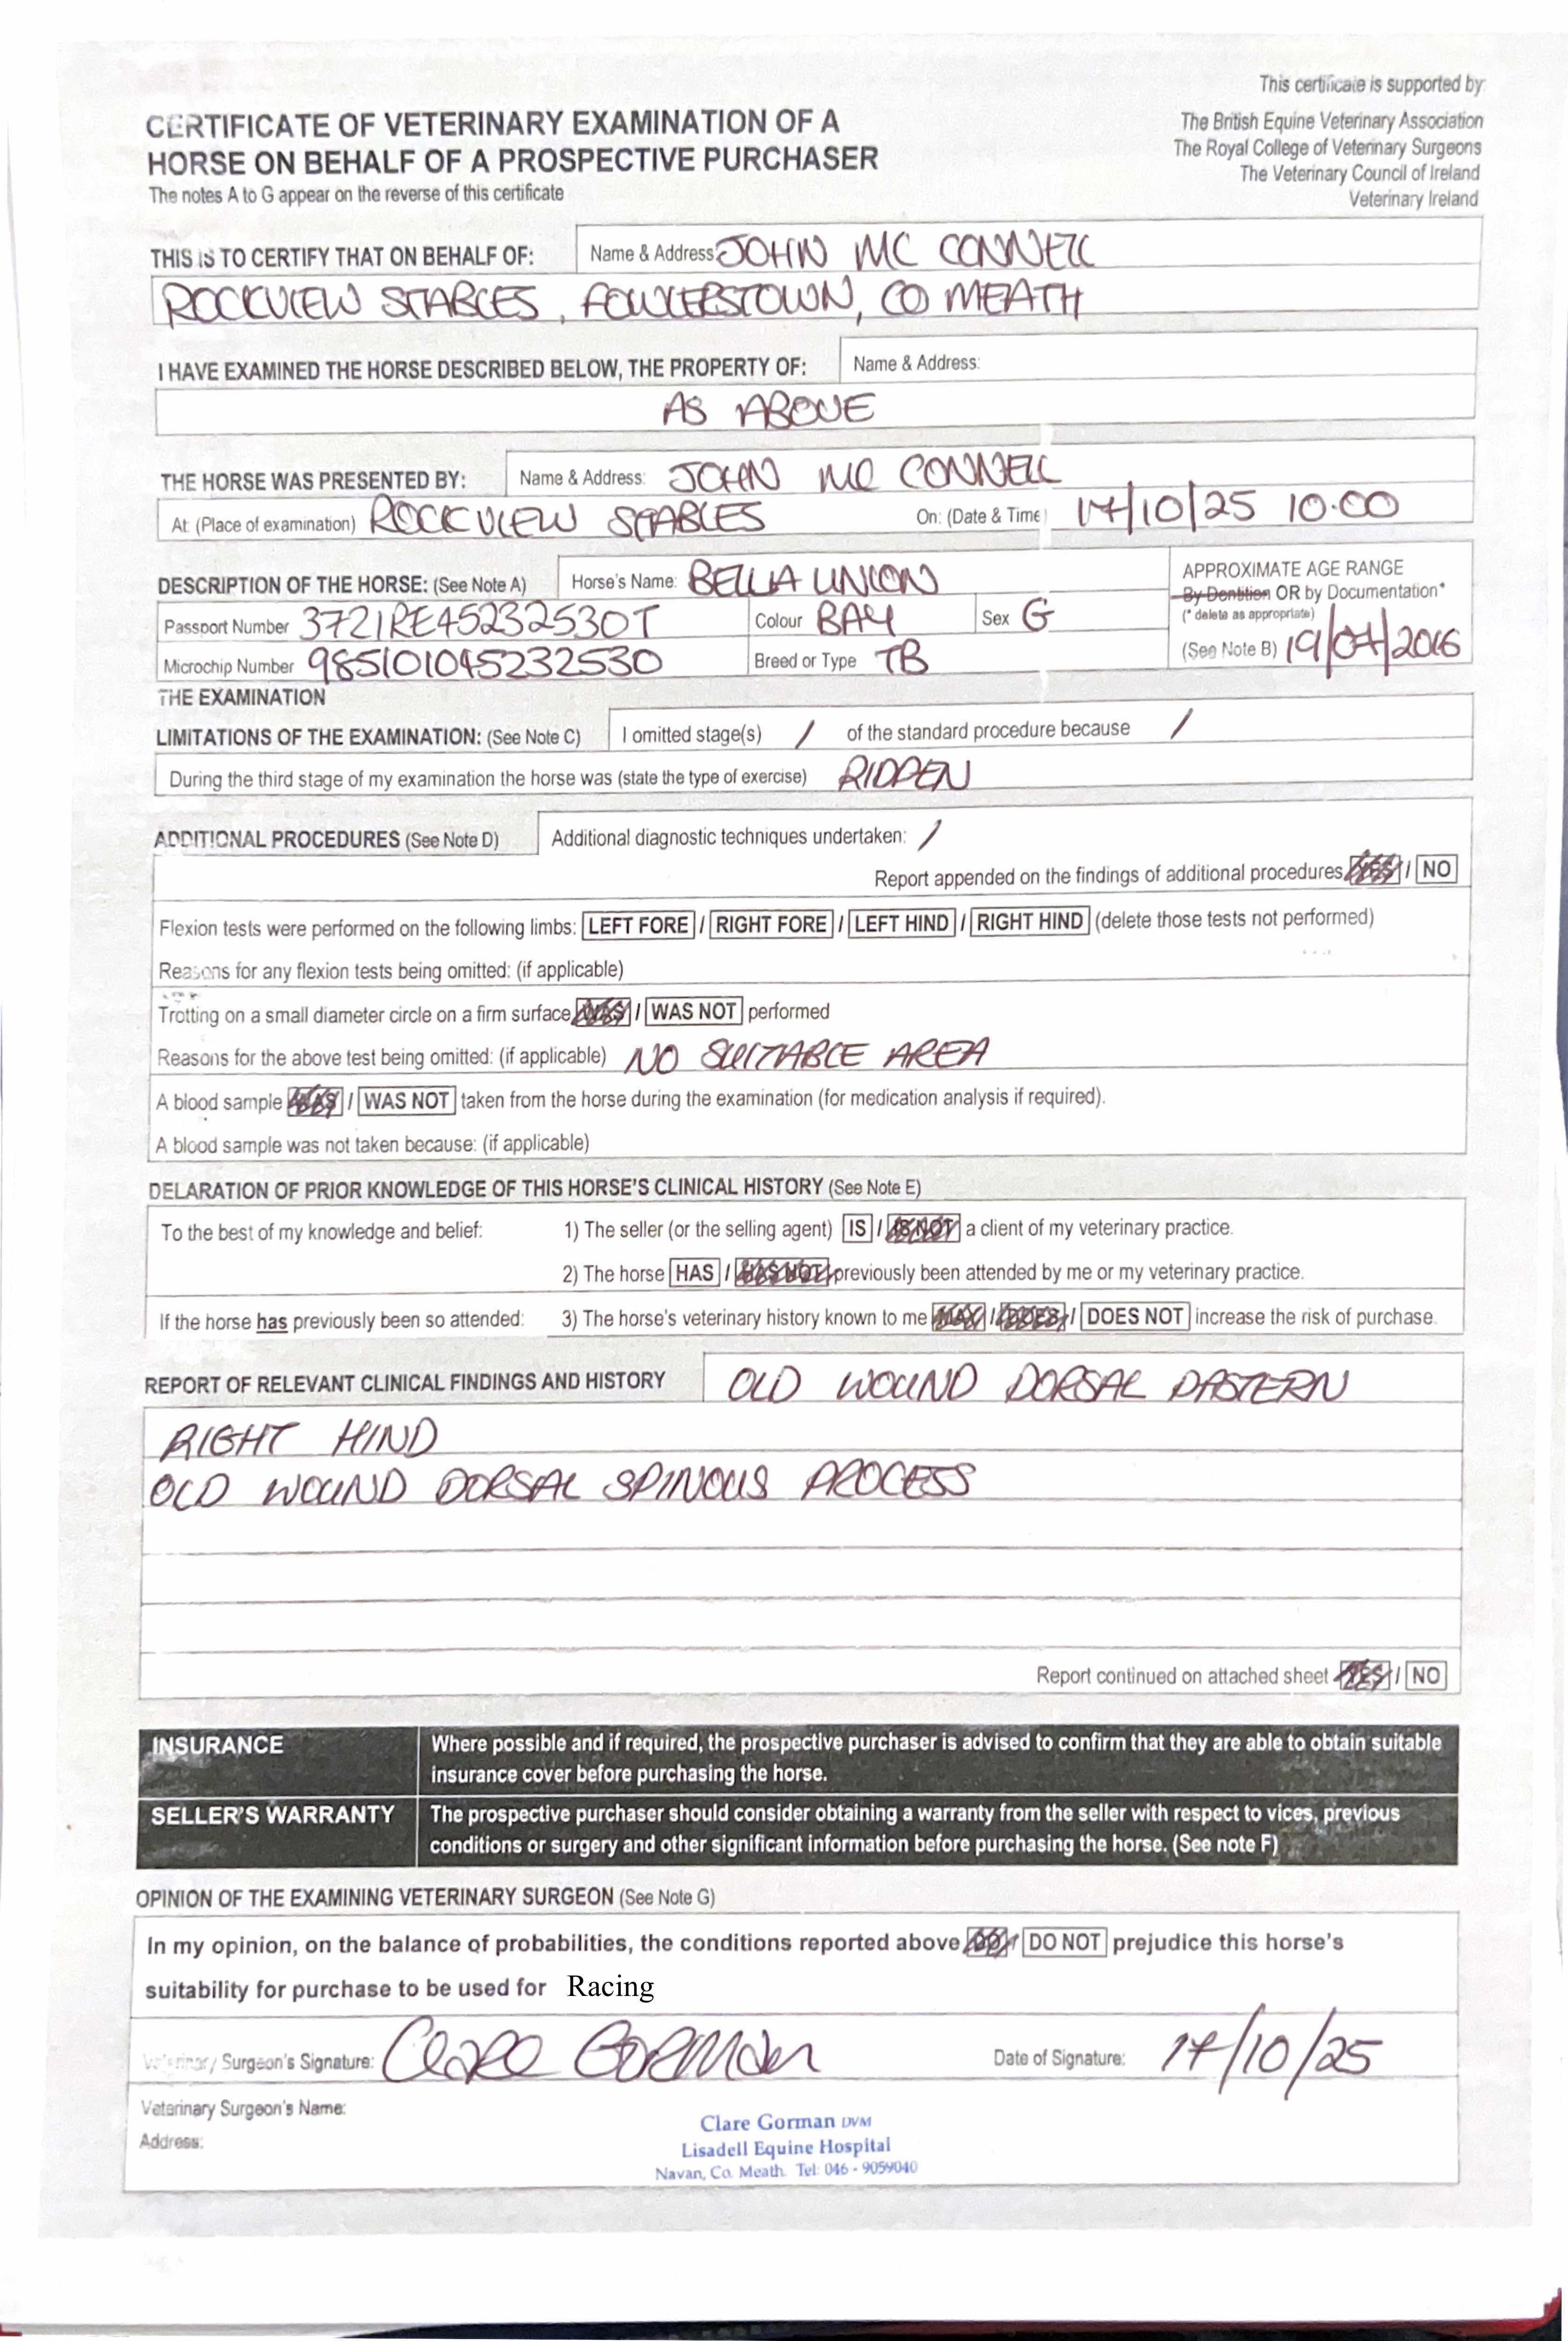 This certificate is supported by:
The British Equine Veterinary Association
The Royal College of Veterinary Surgeons
The Veterinary Council of Ireland
Veterinary Ireland
CERTIFICATE OF VETERINARY EXAMINATION OF A
HORSE ON BEHALF OF A PROSPECTIVE PURCHASER
The notes A to G appear on the reverse of this certificate
THIS IS TO CERTIFY THAT ON BEHALF OF: Name & Address: JOHN MC CONNELL
ROCKVIEW STABLES, FOWLERSTOWN, CO MEATH
I HAVE EXAMINED THE HORSE DESCRIBED BELOW, THE PROPERTY OF: Name & Address:
AS ABOVE
THE HORSE WAS PRESENTED BY: Name & Address: JOHN MC CONNELL
At: (Place of examination) ROCKVIEW STABLES On: (Date & Time) 17/10/25 10.00
DESCRIPTION OF THE HORSE: (See Note A) Horse's Name: BELLA UNION
Passport Number 372IRE45232530T Colour BAY Sex G
Microchip Number 985101045232530 Breed or Type TB
APPROXIMATE AGE RANGE
By Dentition OR by Documentation*
(* delete as appropriate)
(See Note B) 19/04/2016
THE EXAMINATION
LIMITATIONS OF THE EXAMINATION: (See Note C) I omitted stage(s) / of the standard procedure because /
During the third stage of my examination the horse was (state the type of exercise) RIDDEN
ADDITIONAL PROCEDURES (See Note D) Additional diagnostic techniques undertaken: /
Report appended on the findings of additional procedures YES / NO
Flexion tests were performed on the following limbs: LEFT FORE / RIGHT FORE / LEFT HIND / RIGHT HIND (delete those tests not performed)
Reasons for any flexion tests being omitted: (if applicable)
Trotting on a small diameter circle on a firm surface WAS / WAS NOT performed
Reasons for the above test being omitted: (if applicable) NO SUITABLE AREA
A blood sample WAS / WAS NOT taken from the horse during the examination (for medication analysis if required).
A blood sample was not taken because: (if applicable)
DELARATION OF PRIOR KNOWLEDGE OF THIS HORSE'S CLINICAL HISTORY (See Note E)
To the best of my knowledge and belief: 1) The seller (or the selling agent) IS / IS NOT a client of my veterinary practice.
2) The horse HAS / HAS NOT previously been attended by me or my veterinary practice.
If the horse has previously been so attended: 3) The horse's veterinary history known to me MAY / DOES / DOES NOT increase the risk of purchase.
REPORT OF RELEVANT CLINICAL FINDINGS AND HISTORY OLD WOUND DORSAL PASTERN
RIGHT HIND
OLD WOUND DORSAL SPINOUS PROCESS
Report continued on attached sheet YES / NO
INSURANCE Where possible and if required, the prospective purchaser is advised to confirm that they are able to obtain suitable
insurance cover before purchasing the horse.
SELLER'S WARRANTY The prospective purchaser should consider obtaining a warranty from the seller with respect to vices, previous
conditions or surgery and other significant information before purchasing the horse. (See note F)
OPINION OF THE EXAMINING VETERINARY SURGEON (See Note G)
In my opinion, on the balance of probabilities, the conditions reported above DO / DO NOT prejudice this horse's
suitability for purchase to be used for Racing
Veterinary Surgeon's Signature: Clare Gorman Date of Signature: 17/10/25
Veterinary Surgeon's Name:
Address:
Clare Gorman DVM
Lisadell Equine Hospital
Navan, Co. Meath. Tel: 046 - 9059040